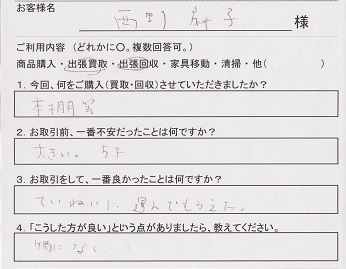 お客様名 西町 子 様
ご利用内容(どれかに〇。複数回答可。)
商品購入・出張買取・出張回収・家具移動・清掃・他( )
1. 今回、何をご購入(買取・回収)させていただきましたか?
本棚 等
2. お取引前、一番不安だったことは何ですか?
大きい。5F
3. お取引をして、一番良かったことは何ですか?
ていねいに運んでもらえた。
4. 「こうした方が良い」という点がありましたら、教えてください。
特になし